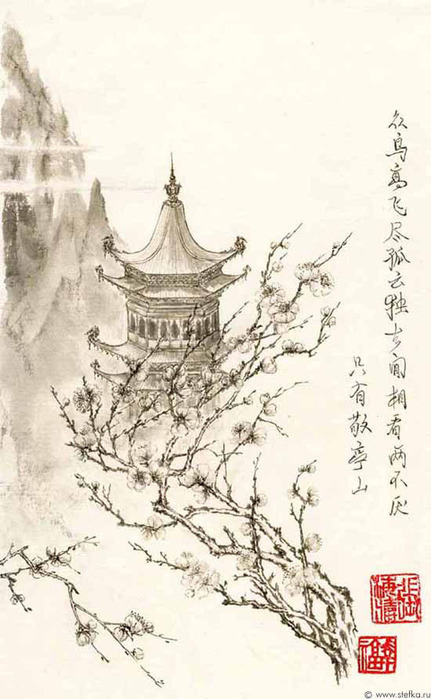 众鸟高飞尽孤云独去闲相看两不厌
只有敬亭山
© www.stefka.ru